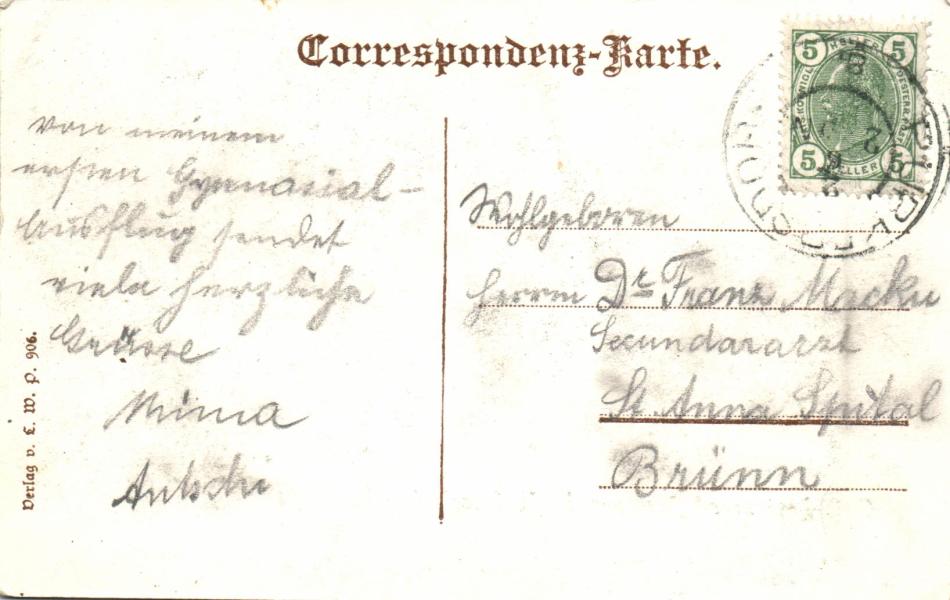 Correspondenz-Karte.
von meinem
ersten Gymnasial-
Ausflug sendet
viele herzliche
Grüsse
Mima
Verlag v. L. W. P. 906.
5 HELLER 5
5 HELLER 5
Wohlgeboren
Herrn Dr Franz Macku
Secundararzt
St. Anna Spital
Brünn